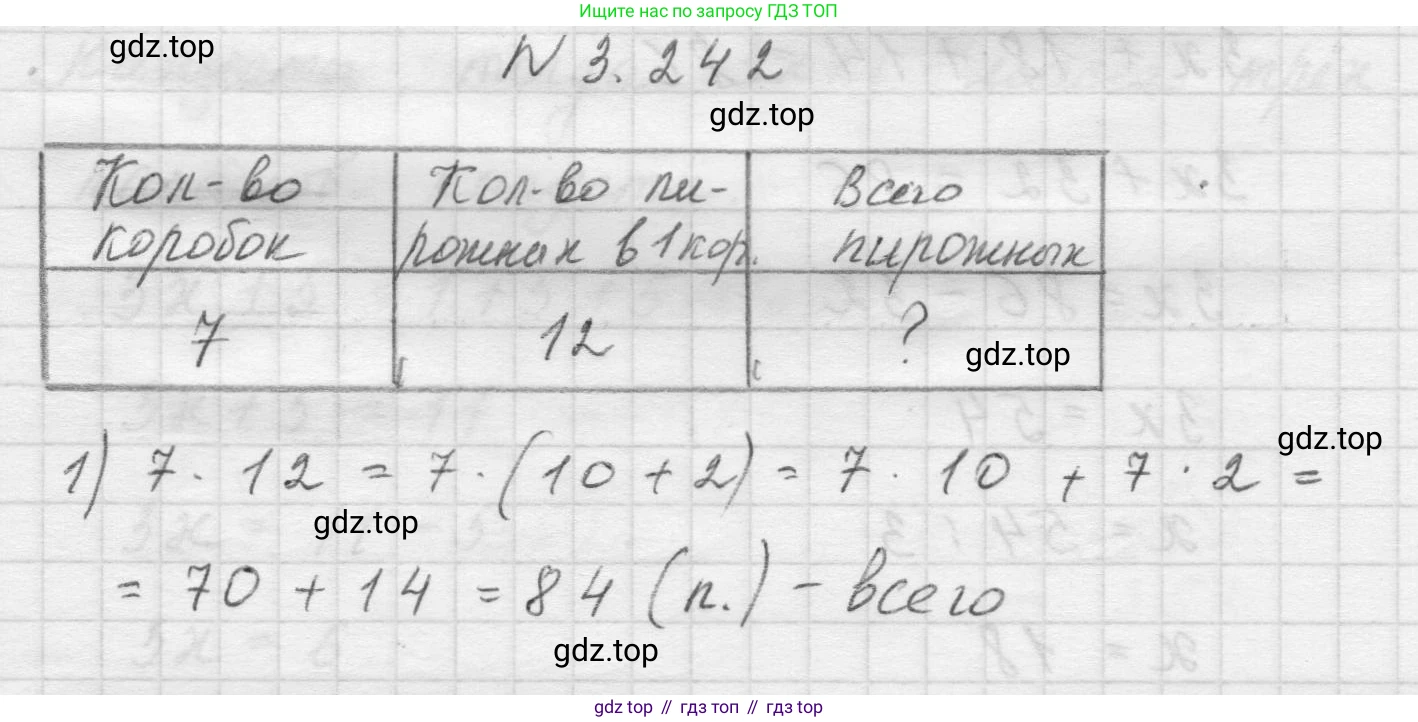 Ищите нас по запросу ГДЗ ТОП
gdz.top
N 3.242
gdz.top
Кол-во Кол-во пи- Всего
коробок рожных в 1 кор. пирожных
7 12 ?
gdz.top
gdz.top
1) 7 · 12 = 7 · (10 + 2) = 7 · 10 + 7 · 2 =
gdz.top
= 70 + 14 = 84 (п.) - всего
gdz.top
gdz top // гдз топ // гдз top